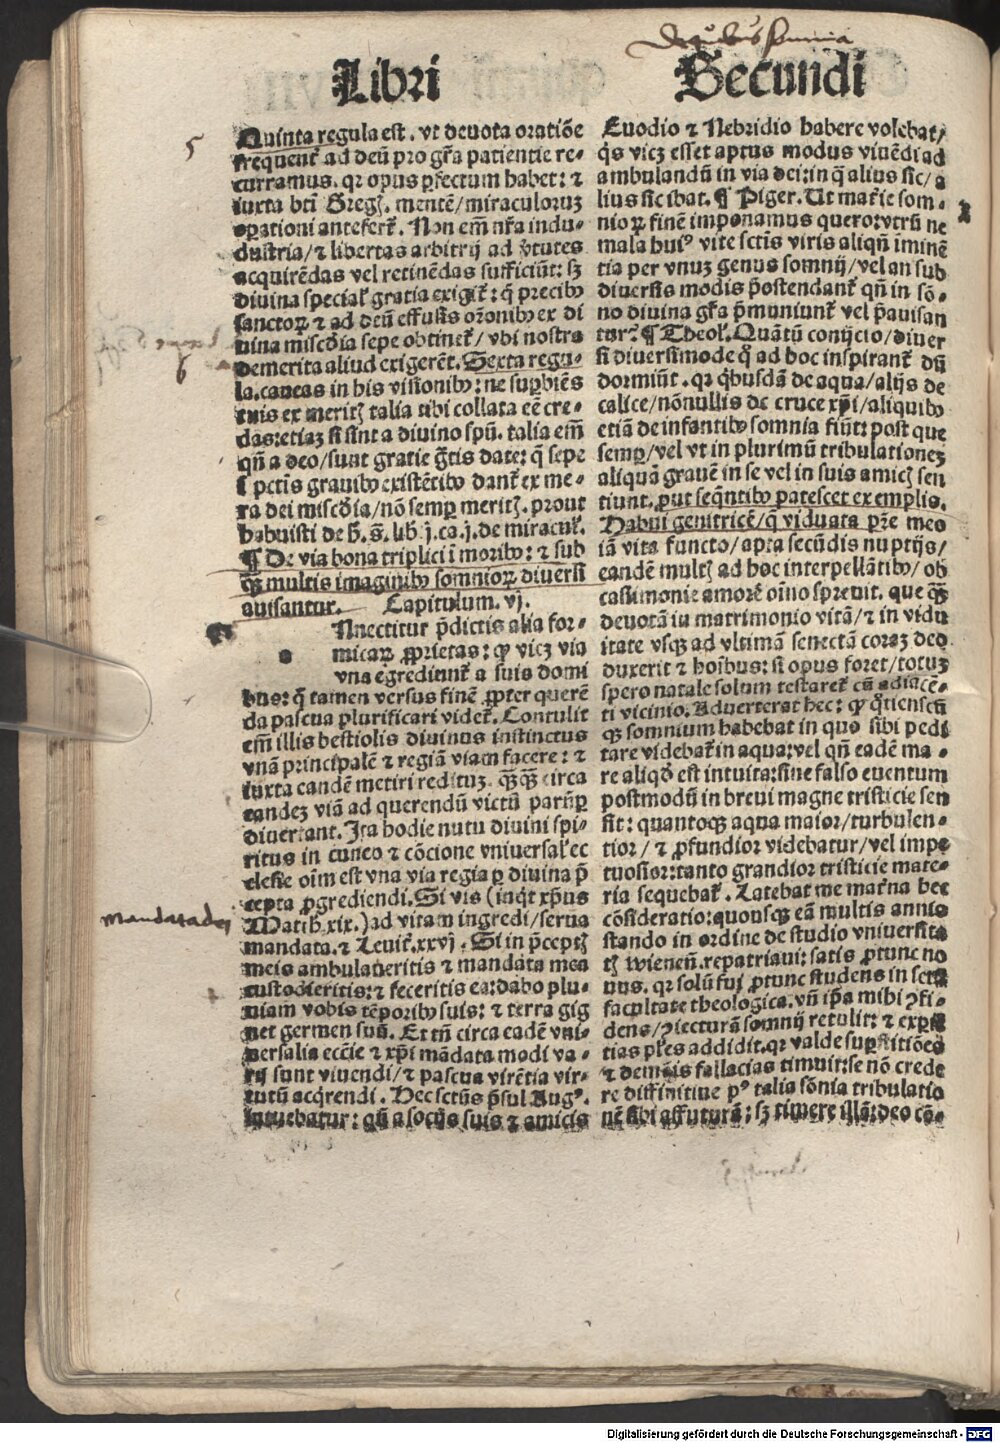 De quibus somnia
Libri Secundi
5
Quinta regula est. vt deuota oratiōe
frequent᷑ ad deū pro gr̄a patientie re-
curramus. qꝛ opus ꝑfectum habet: ⁊
iuxta bti Greg. mentē/miraculoruꝫ
oꝑationi antefert᷑. Non em̄ nr̄a indu-
dustria/⁊ libertas arbitrij ad v̓tutes
acquirēdas vel retinēdas sufficiūt: sꝫ
diuina special᷑ gratia exigit᷑: q̄ precibꝰ
sanctoꝝ ⁊ ad deū effusis oōnonibꝰ ex di
uina misc̄dia sepe obtinet᷑/vbi nostra
demerita aliud exigerēt. Sexta regu-
6
la. caueas in his visionibꝰ: ne suꝑbiēs
tuis ex merit̄ talia tibi collata eē cre-
das: etiaꝫ si sint a diuino spū. talia em̄
qn̄ a deo/sunt gratie gr̄tis date: q̄ sepe
ī pctīs grauibꝰ existētibꝰ dant᷑ ex me-
ra dei misc̄dia/nō semꝑ merit̄. prout
habuisti de b. g. lib. j. ca. j. de miracul᷑.
¶ De via bona triplici ī moribꝰ: ⁊ sub
qꝫ multis imaginibꝰ somnioꝝ diuersi
auisantur. Capitulum. vj.
Nnectitur p̄dictis alia for-
micaꝝ ꝓprietas: ꝙ vicꝫ via
vna egrediunt᷑ a suis domi
bus: q̄ tamen versus finē ꝓpter querē
da pascua plurificari videt᷑. Contulit
em̄ illis bestiolis diuinus instinctus
vnā principalē ⁊ regiā viam facere: ⁊
iuxta eandē metiri redituꝫ. qꝫqꝫ circa
eandeꝫ viā ad querendū victū parūꝑ
diuertant. Ita hodie nutu diuini spi-
ritus in cuneo ⁊ cōcione vniuersal᷑ ec
clesie oīm est vna via regia ꝑ diuina p̄
cepta ꝓgrediendi. Si vis (inqt xp̄us
Math. xix.) ad vitam ingredi/serua
Mandata dei
mandata. ⁊ Leuit᷑. xxvj. Si in p̄cept̄
meis ambulaueritis ⁊ mandata mea
custodieritis: ⁊ feceritis ea: dabo plu-
uiam vobis tēporibꝰ suis: ⁊ terra gig
net germen suū. Et tn̄ circa eadē vni-
uersalis eccīe ⁊ xp̄i mādata modi va-
rij sunt viuendi/⁊ pascua virētia vir-
tutū acq̄rendi. Hec sctūs p̄sul Augꝰ.
intuebatur: qn̄ a socijs suis ⁊ amicis
Euodio ⁊ Nebridio habere volebat/
qs vicꝫ esset aptus modus viuēdi ad
ambulandū in via dei: in q̄ alius sic/a
lius sic ibat. ¶ Piger. Ut mat̄ie som-
nioꝝ finē imponamus quero: vtrū ne
mala huiꝰ vite sctis viris aliqn̄ iminē
tia per vnuꝫ genus somnij/vel an sub
diuersis modis p̄ostendant᷑ qn̄ in sō-
no diuina gr̄a p̄muniunt᷑ vel p̄auisan
tur? ¶ Theol᷑. Quātū conijcio/diuer
si diuersimode q̊ ad hoc inspirant᷑ dū
dormiūt. qꝛ q̇busdā de aqua/alijs de
calice/nōnullis de cruce xp̄i/aliquibꝰ
etiā de infantibꝰ somnia fiūt: post que
semꝑ/vel vt in plurimū tribulationeꝫ
aliquā grauē in se vel in suis amic̄ sen
tiunt. ꝓut seq̄ntibꝰ patescet exemplis.
Habui genitricē/q̄ viduata pr̄e meo
iā vita functo/apta secūdis nuptijs/
eandē mult̄ ad hoc interpellātibꝰ/ob
castimonie amorē oīno spreuit. que qꝫ
deuotā in matrimonio vitā/⁊ in vidu
itate vsqꝫ ad vltimā senectā coraꝫ deo
duxerit ⁊ hoībus: si opus foret/totuꝫ
spero natale solum testaret᷑ cū adiacē-
ti vicinio. Aduerterat hec: ꝙ q̊tienscū
qꝫ somnium habebat in quo sibi pedi
tare videbat᷑ in aqua: vel qn̄ eadē ma-
re aliqd̄ est intuita: sine falso euentum
postmodū in breui magne tristicie sen
sit: quantoqꝫ aqua maior/turbulen-
tior/⁊ ꝓfundior videbatur/vel impe
tuosior: tanto grandior tristicie mate-
ria sequebat᷑. Latebat me mat̄na hec
cōsideratio: quousqꝫ eā multis annis
stando in ordine de studio vniuersita
t̄ wieneñ. repatriaui: satis ꝓtunc no
uus. qꝛ solū fui ꝓtunc studens in sctā
facultate theologica. vn̄ ip̄a mihi ꝯfi-
dens/ꝯiecturā somnij retulit: ⁊ exp̄iē
tias ples addidit. qꝛ valde suꝑstitiōes
⁊ demōis fallacias timuit: se nō crede
re diffinitiue pꝰ talia sōnia tribulatio
nē sibi affuturā: sꝫ timere illā: deo cō-
Digitalisierung gefördert durch die Deutsche Forschungsgemeinschaft - DFG